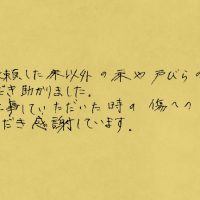 頼した床以外の床や戸びらの
だき助かりました。
事していただいた時の傷への
だき感謝しています.